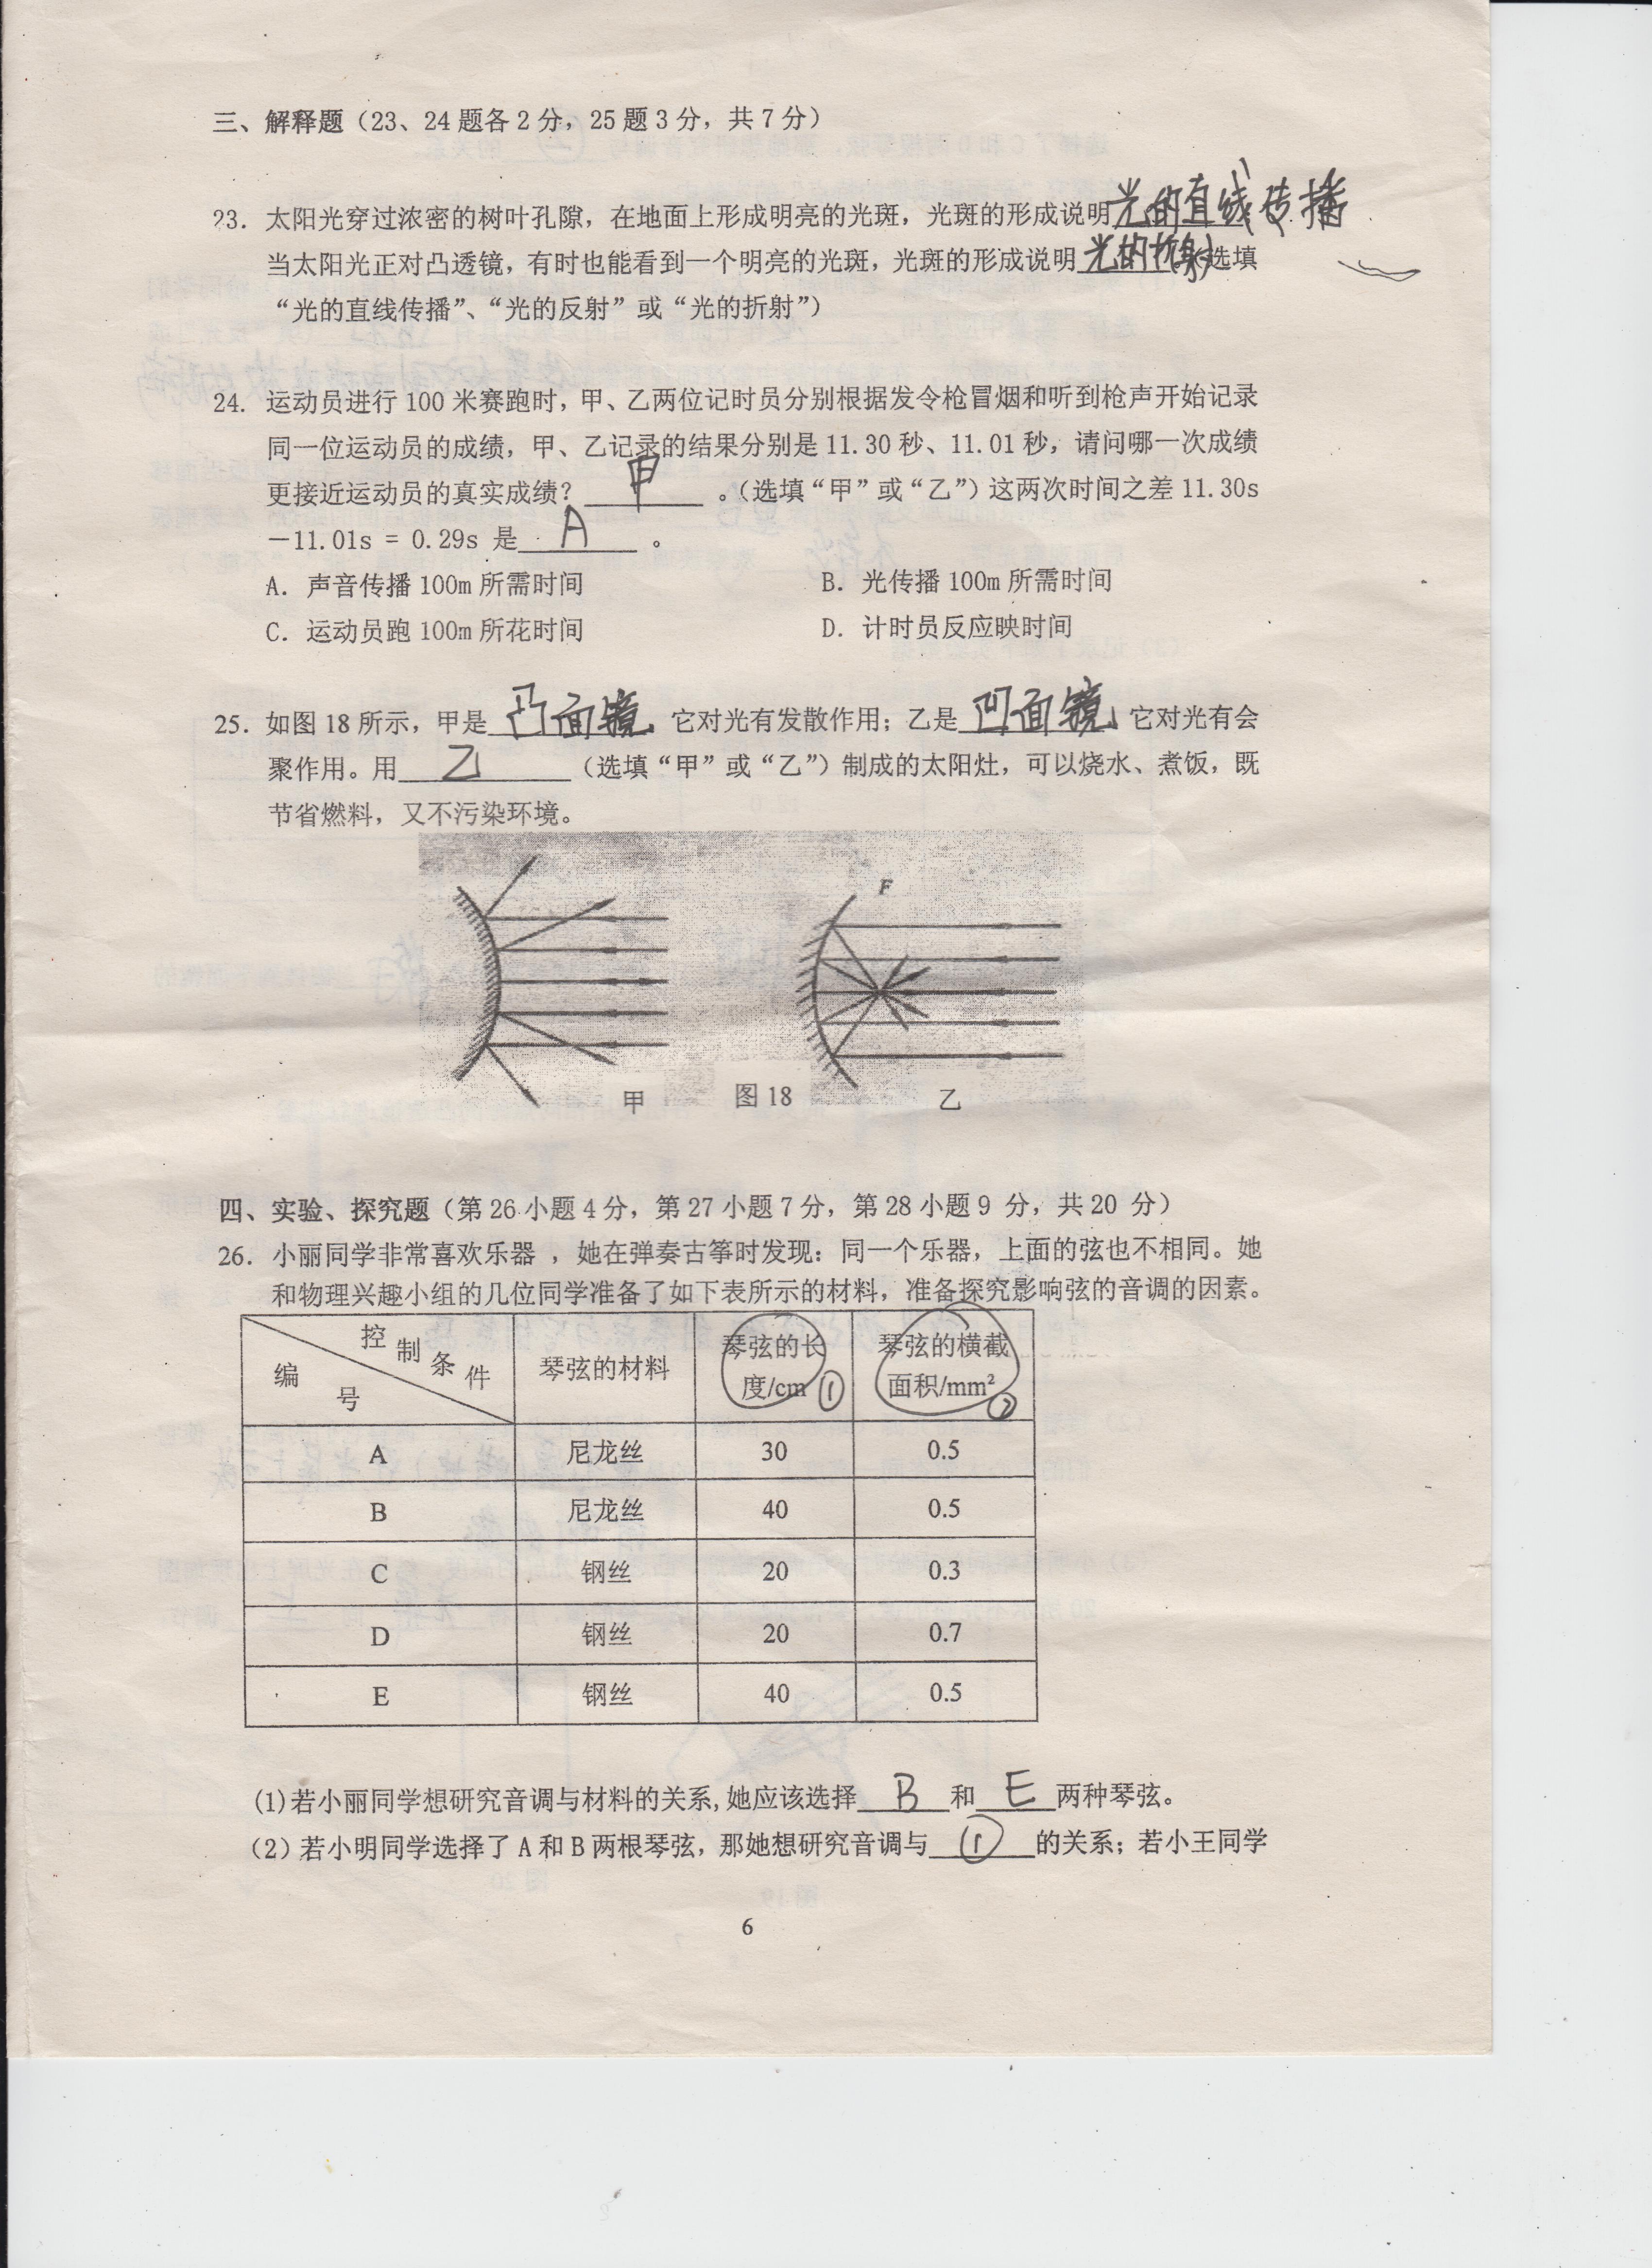 三、解释题（23、24题各2分，25题3分，共7分）
23. 太阳光穿过浓密的树叶孔隙，在地面上形成明亮的光斑，光斑的形成说明光的直线传播
当太阳光正对凸透镜，有时也能看到一个明亮的光斑，光斑的形成说明光的折射（选填
“光的直线传播”、“光的反射”或“光的折射”）
24. 运动员进行100米赛跑时，甲、乙两位记时员分别根据发令枪冒烟和听到枪声开始记录
同一位运动员的成绩，甲、乙记录的结果分别是11.30秒、11.01秒，请问哪一次成绩
更接近运动员的真实成绩？甲。（选填“甲”或“乙”）这两次时间之差11.30s
－11.01s = 0.29s 是A。
A. 声音传播100m所需时间 B. 光传播100m所需时间
C. 运动员跑100m所花时间 D. 计时员反应映时间
25. 如图18所示，甲是凸面镜 它对光有发散作用；乙是凹面镜 它对光有会
聚作用。用乙（选填“甲”或“乙”）制成的太阳灶，可以烧水、煮饭，既
节省燃料，又不污染环境。
F
甲 图18 乙
四、实验、探究题（第26小题4分，第27小题7分，第28小题9 分，共20 分）
26. 小丽同学非常喜欢乐器 ，她在弹奏古筝时发现：同一个乐器，上面的弦也不相同。她
和物理兴趣小组的几位同学准备了如下表所示的材料，准备探究影响弦的音调的因素。
控制条件 编号 琴弦的材料 琴弦的长度/cm ① 琴弦的横截面积/mm² ②
A 尼龙丝 30 0.5
B 尼龙丝 40 0.5
C 钢丝 20 0.3
D 钢丝 20 0.7
E 钢丝 40 0.5
(1)若小丽同学想研究音调与材料的关系,她应该选择B和E两种琴弦。
(2)若小明同学选择了A和B两根琴弦，那她想研究音调与①的关系；若小王同学
6